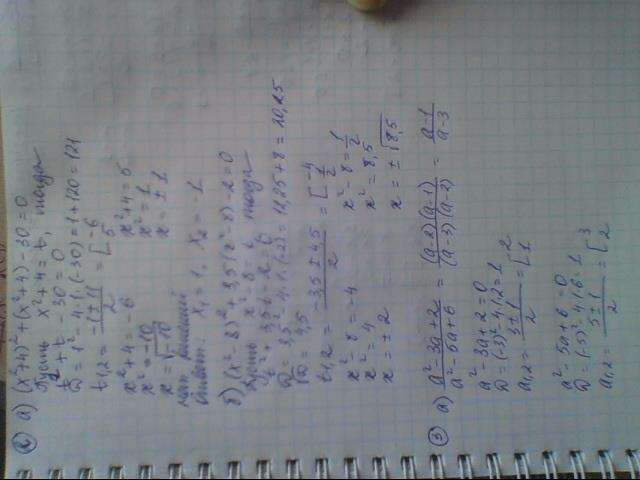 2) а) (x²+4)²+(x²+4)-30=0
Пусть x²+4=t, тогда
t²+t-30=0
D=1²-4·1·(-30)=1+120=121
t1,2=(-1±11)/2=[-6 5
x²+4=-6 x²+4=5
x²=-10 x²=1
x=√-10 x=±1
нет решений
Ответ: x₁=1, x₂=-1.
б) (x²-8)²+3,5(x²-8)-2=0
Пусть x²-8=t, тогда
t²+3,5t-2=0
D=3,5²-4·1·(-2)=12,25+8=20,25
√D=4,5
t1,2=(-3,5±4,5)/2=[-4 1/2
x²-8=-4 x²-8=1/2
x²=4 x²=8,5
x=±2 x=±√8,5
3) а) (a²-3a+2)/(a²-5a+6)=((a-2)(a-1))/((a-3)(a-2))=(a-1)/(a-3)
a²-3a+2=0
D=(-3)²-4·1·2=1
a1,2=(3±1)/2=[2 1
a²-5a+6=0
D=(-5)²-4·1·6=1
a1,2=(5±1)/2=[3 2